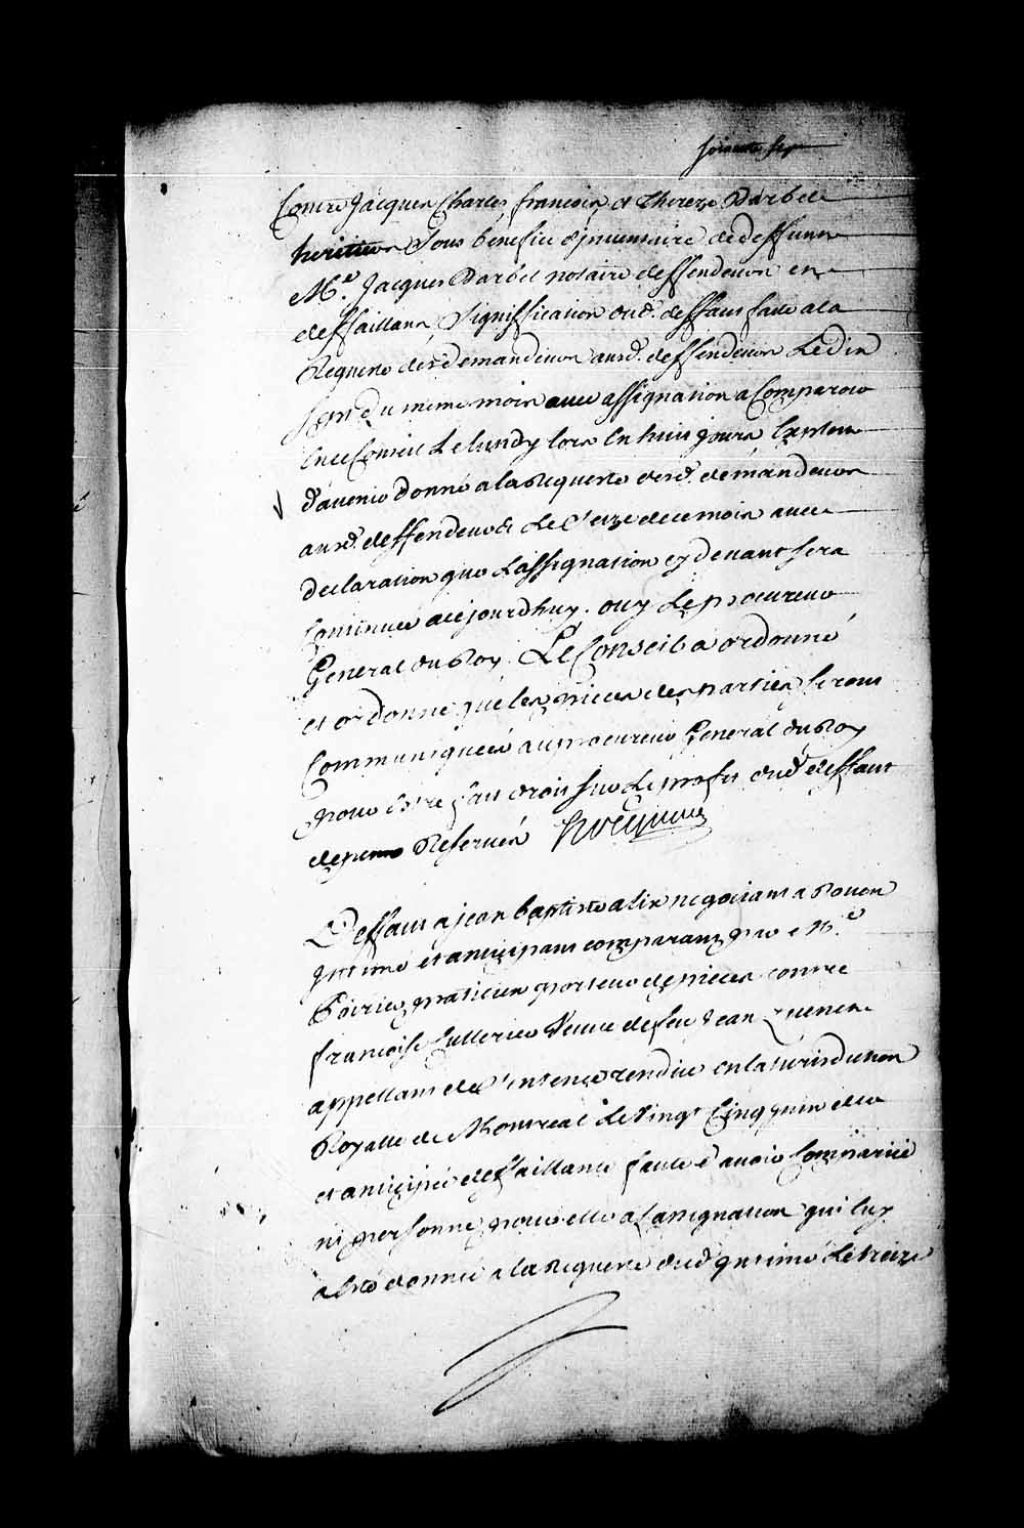 soixante sep
Contre Jacques Charles francois et Therese Barbel
heritiers sous benefice d'jnventaire de deffunt
Me. Jacques Barbel notaire deffendeurs et
deffaillans, Signiffication dud. deffaut faite a la
Requeste desd. demandeurs ausd. deffendeurs Le dix
sept du meme mois avec assignation a Comparoir
en ce Conseil Le lundy lors en huit jours
d'avenir donné a la Requeste desd. demandeurs
ausd. deffendeurs Le seize de ce mois avec
declaration que L'assignation cy devant sera
Continuée a cejourdhuy. ouy Le procureur
General du Roy. Le Conseil a ordonné
et ordonne que les pieces des parties seront
Communiquées au procureur General du Roy
pour Estre fait droit sur Le profit dud. deffaut
depens Reservés Hocquart
Deffaut a jean baptiste alix negociant a Rouen
Jntimé et anticipant comparant par Me.
Poirier praticien porteur de pieces contre
françoise Cuillerier Veuve de feu Jean quenet
appellant de Sentence rendue en la Jurisdiction
Royalle de Montreal le Vingt Cinq juin der
et anticipée deffaillante faute d'avoir Comparue
ny personne pour elle a L'assignation qui luy
a Esté donnée a la Requeste dud. jntimé Le treize